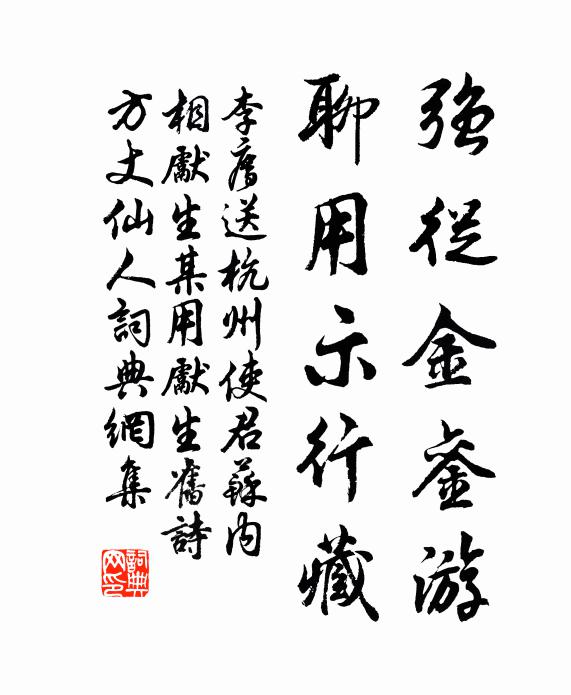 強從金銮游
聊用示行藏
李廌送杭州使君蘇內
相獻生某用獻生舊詩
方丈仙人詞典網集
詞典
网印